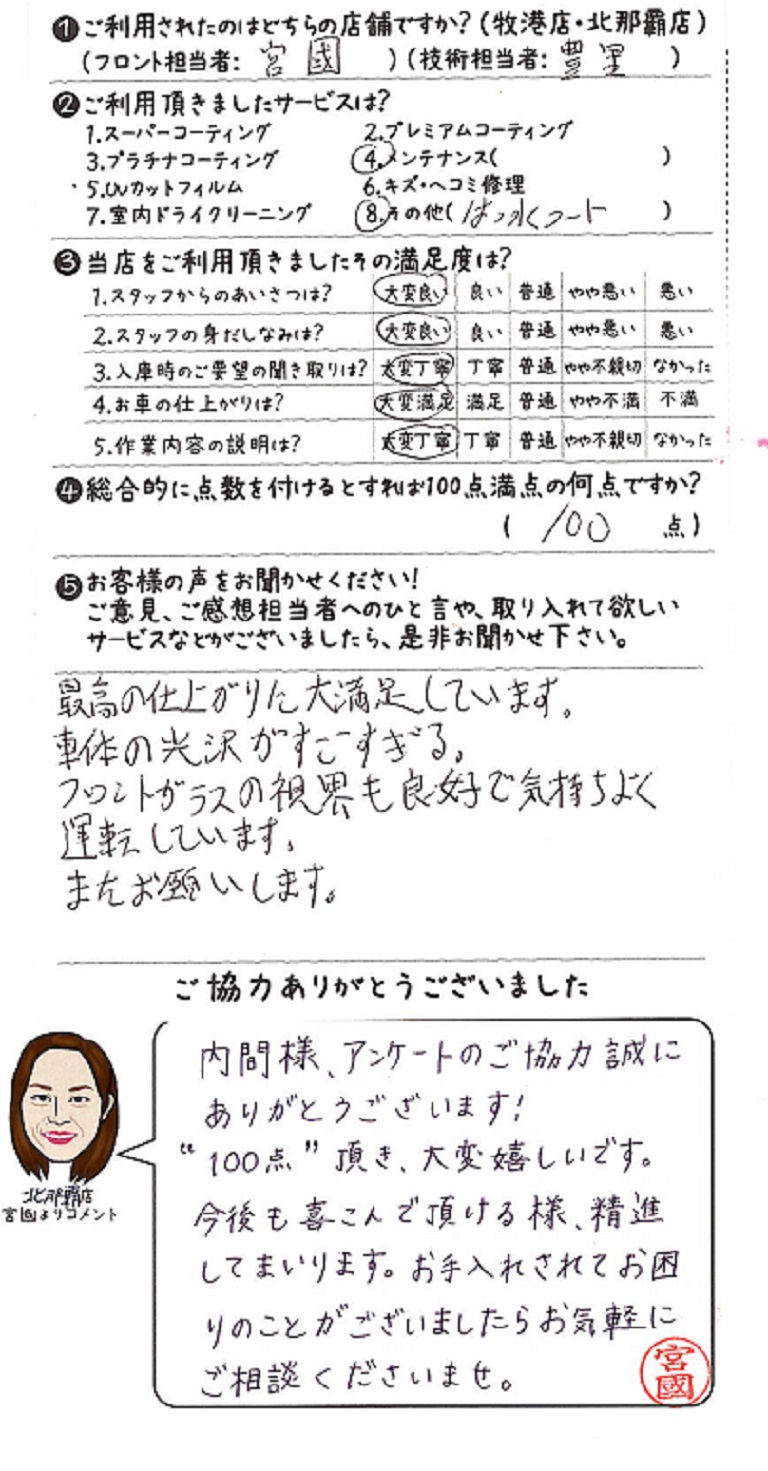 ❶ご利用されたのはどちらの店舗ですか?(牧港店・北那覇店)
(フロント担当者: 宮國 )(技術担当者: 豊里 )
❷ご利用頂きましたサービスは?
1.スーパーコーティング 2.プレミアムコーティング
3.プラチナコーティング 4.メンテナンス( )
5.UVカットフィルム 6.キズ・ヘコミ修理
7.室内ドライクリーニング 8.その他(はっ水コート )
❸当店をご利用頂きましたその満足度は?
1.スタッフからのあいさつは? 大変良い 良い 普通 やや悪い 悪い
2.スタッフの身だしなみは? 大変良い 良い 普通 やや悪い 悪い
3.入庫時のご要望の聞き取りは? 大変丁寧 丁寧 普通 やや不親切 なかった
4.お車の仕上がりは? 大変満足 満足 普通 やや不満 不満
5.作業内容の説明は? 大変丁寧 丁寧 普通 やや不親切 なかった
❹総合的に点数を付けるとすれば100点満点の何点ですか?
( 100 点)
❺お客様の声をお聞かせください!
ご意見、ご感想担当者へのひと言や、取り入れて欲しい
サービスなどがございましたら、是非お聞かせ下さい。
最高の仕上がりに大満足しています。
車体の光沢がすごすぎる。
フロントガラスの視界も良好で気持ちよく
運転しています。
またお願いします。
ご協力ありがとうございました
内間様、アンケートのご協力誠に
ありがとうございます!
“100点”頂き、大変嬉しいです。
今後も喜こんで頂ける様、精進
してまいります。お手入れされてお困
りのことがございましたらお気軽に
ご相談くださいませ。
北那覇店
宮國よりコメント
宮國